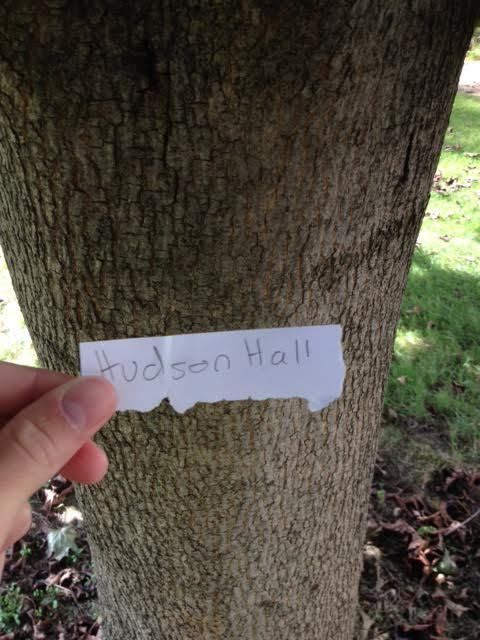 Hudson Hall